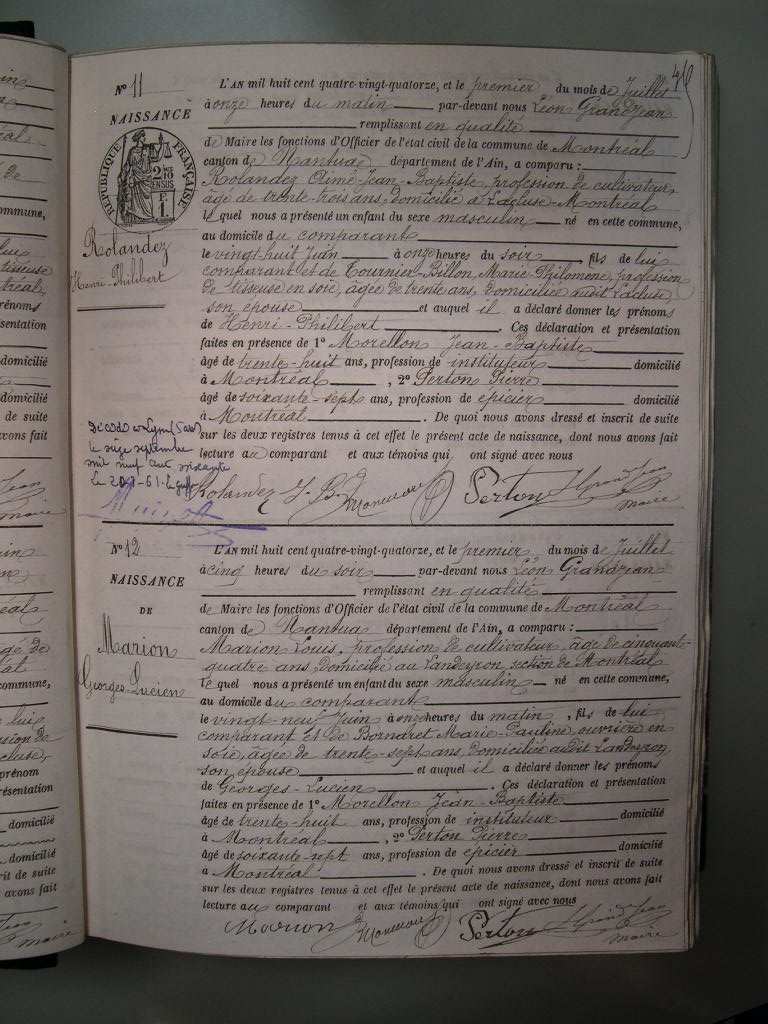 N° 11
NAISSANCE
RÉPUBLIQUE FRANÇAISE
Rolandez
Henri-Philibert
L'AN mil huit cent quatre-vingt-quatorze, et le premier du mois de Juillet
à onze heures du matin par-devant nous Léon Grandjean
remplissant en qualité
de Maire les fonctions d'Officier de l'état civil de la commune de Montréal
canton de Nantua département de l'Ain, a comparu :
Rolandez Aimé-Jean-Baptiste, profession de cultivateur,
âgé de trente-trois ans, domicilié à Lacluse-Montréal
le quel nous a présenté un enfant du sexe masculin né en cette commune,
au domicile du comparant
le vingt-huit Juin à onze heures du soir, fils de lui
comparant et de Tournier-Billon Marie-Philomène, profession
de tisseuse en soie, âgée de trente ans, domiciliée audit Lacluse,
son épouse et auquel il a déclaré donner les prénoms
de Henri-Philibert. Ces déclaration et présentation
faites en présence de 1° Morellon Jean-Baptiste
âgé de trente-huit ans, profession de instituteur domicilié
à Montréal, 2° Perton Pierre
âgé de soixante-sept ans, profession de épicier domicilié
à Montréal. De quoi nous avons dressé et inscrit de suite
sur les deux registres tenus à cet effet le présent acte de naissance, dont nous avons fait
lecture au comparant et aux témoins qui ont signé avec nous
Décédé
le seize septembre
mil neuf cent soixante
Rolandez J. B. Perton Grandjean
maire
N° 12
NAISSANCE
DE
Marion
Georges-Lucien
L'AN mil huit cent quatre-vingt-quatorze, et le premier du mois de Juillet
à cinq heures du soir par-devant nous Léon Grandjean
remplissant en qualité
de Maire les fonctions d'Officier de l'état civil de la commune de Montréal
canton de Nantua département de l'Ain, a comparu :
Marion Louis, profession de cultivateur, âgé de cinquante-
quatre ans, domicilié au Landeyron section de Montréal
le quel nous a présenté un enfant du sexe masculin né en cette commune,
au domicile du comparant
le vingt-neuf Juin à onze heures du matin, fils de lui
comparant et de Bornaret Marie-Pauline ouvrière en
soie, âgée de trente-sept ans, domiciliée audit Landeyron,
son épouse et auquel il a déclaré donner les prénoms
de Georges-Lucien. Ces déclaration et présentation
faites en présence de 1° Morellon Jean-Baptiste
âgé de trente-huit ans, profession de instituteur domicilié
à Montréal, 2° Perton Pierre
âgé de soixante-sept ans, profession de épicier domicilié
à Montréal. De quoi nous avons dressé et inscrit de suite
sur les deux registres tenus à cet effet le présent acte de naissance, dont nous avons fait
lecture au comparant et aux témoins qui ont signé avec nous
Marion Perton Grandjean
maire